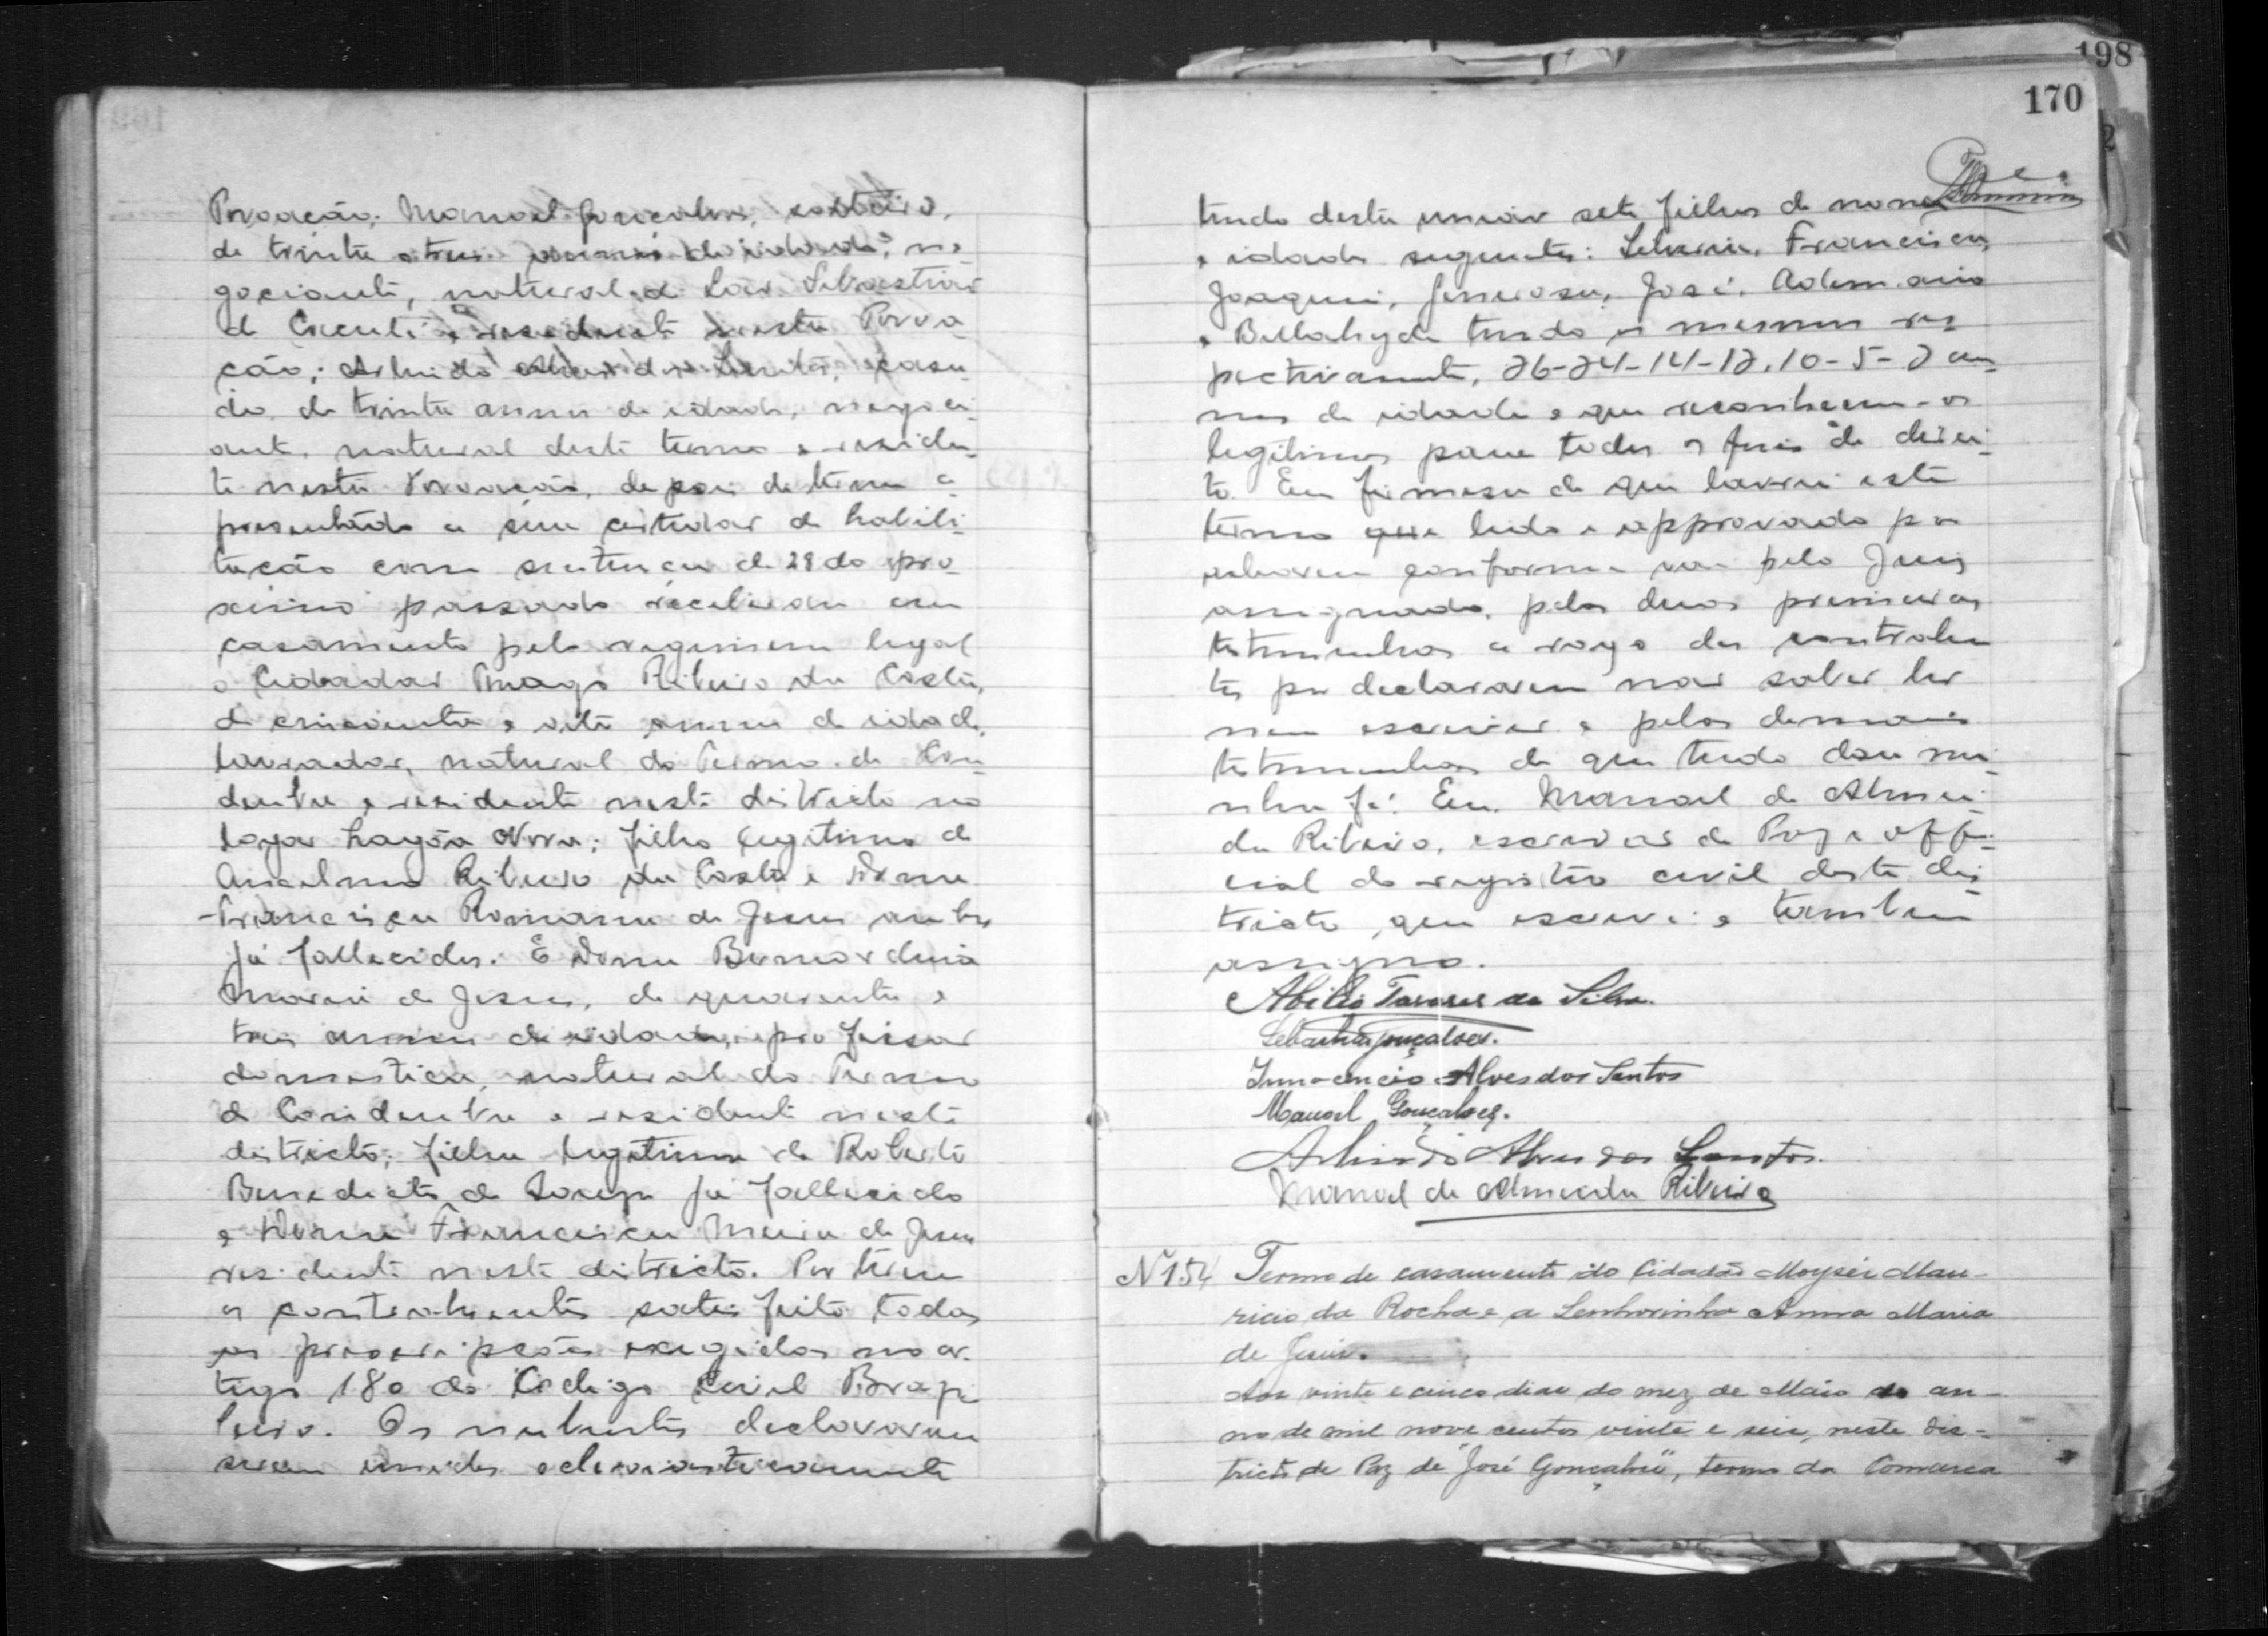 Povoação; Manoel Gonçalves, solteiro,
de trinta e tres annos de idade, ne-
gociante, natural de São Sebastião
de Caculé e residente nesta Povoa-
ção; Arlindo Alves dos Santos, casa-
do, de trinta annos de idade, negoci-
ante, natural deste termo e residen-
te nesta Povoação, depois de terem a-
presentado a sua certidão de habili-
tação com sentença de 28 do pro-
ximo passado receberam em
casamento pelo regimem legal
o Cidadão Thiago Ribeiro da Costa,
de cincoenta e oito annos de idade,
lavrador, natural do Termo de Con-
deuba e residente neste districto no
logar Lagôa Nova; filho legitimo de
Anselmo Ribeiro da Costa e Dona
Francisca Romana de Jesus ambos
já fallecidos. E Dona Bernardina
Maria de Jesus, de quarenta e
tres annos de idade, profissão
domestica, natural do Termo
de Condeuba e residente neste
districto; filha legitima de Roberto
Benedicto de Souza já fallecido
e Dona Francisca Maria de Jesus
residente neste districto. Por terem
os contrahentes satisfeito todas
as prescripções exigidas no ar-
tigo 180 do Codigo Civil Brazi-
leiro. Os nubentes declararam
serem unidos ecleziasticamente
198
170
tendo desta união sete filhos de nomes
e idades seguintes: Francisca,
Joaquim, Generosa, José, Ademario
e tendo os mesmos res-
pectivamente, 26-24-14-12,10-5-2 an-
nos de idade e que reconhecem-os
legitimos para todos os fins de direi-
to. Em firmesa de que lavrei este
termo que lido e approvado por
acharem conforme vai pelo Juiz
assignado, pelas duas primeiras
testemunhas a rogo dos contrahen-
tes por declararem não saber ler
nem escrever e pelas demais
testemunhas de que tudo dou mi-
nha fé. Eu, Manoel de Almei-
da Ribeiro, escrivão de Paz e offi-
cial do registro civil deste dis-
tricto, que escrevi e tambem
assigno.
Abilio Tavares da Silva.
Sebastião Gonçalves.
Innocencio Alves dos Santos
Manoel Gonçalves.
Arlindo Alves dos Santos.
Manoel de Almeida Ribeiro
N 154 Termo de casamento do Cidadão Moysés Mau-
ricio da Rocha e a Senhorinha Anna Maria
de Jesus.
Aos vinte e cinco dias do mez de Maio do an-
no de mil nove centos vinte e seis, neste dis-
tricto de Paz de "José Gonçalves", termo da Comarca